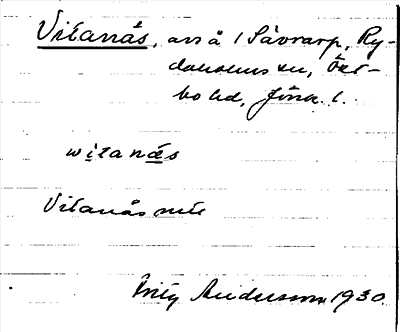 Vitanäs, avs å 1 Sävrarp, Ry-
daholms sn, Öst-
bo hd, Jönk. l.
witanäs
Vitanäs
Fritz Andersson 1930.